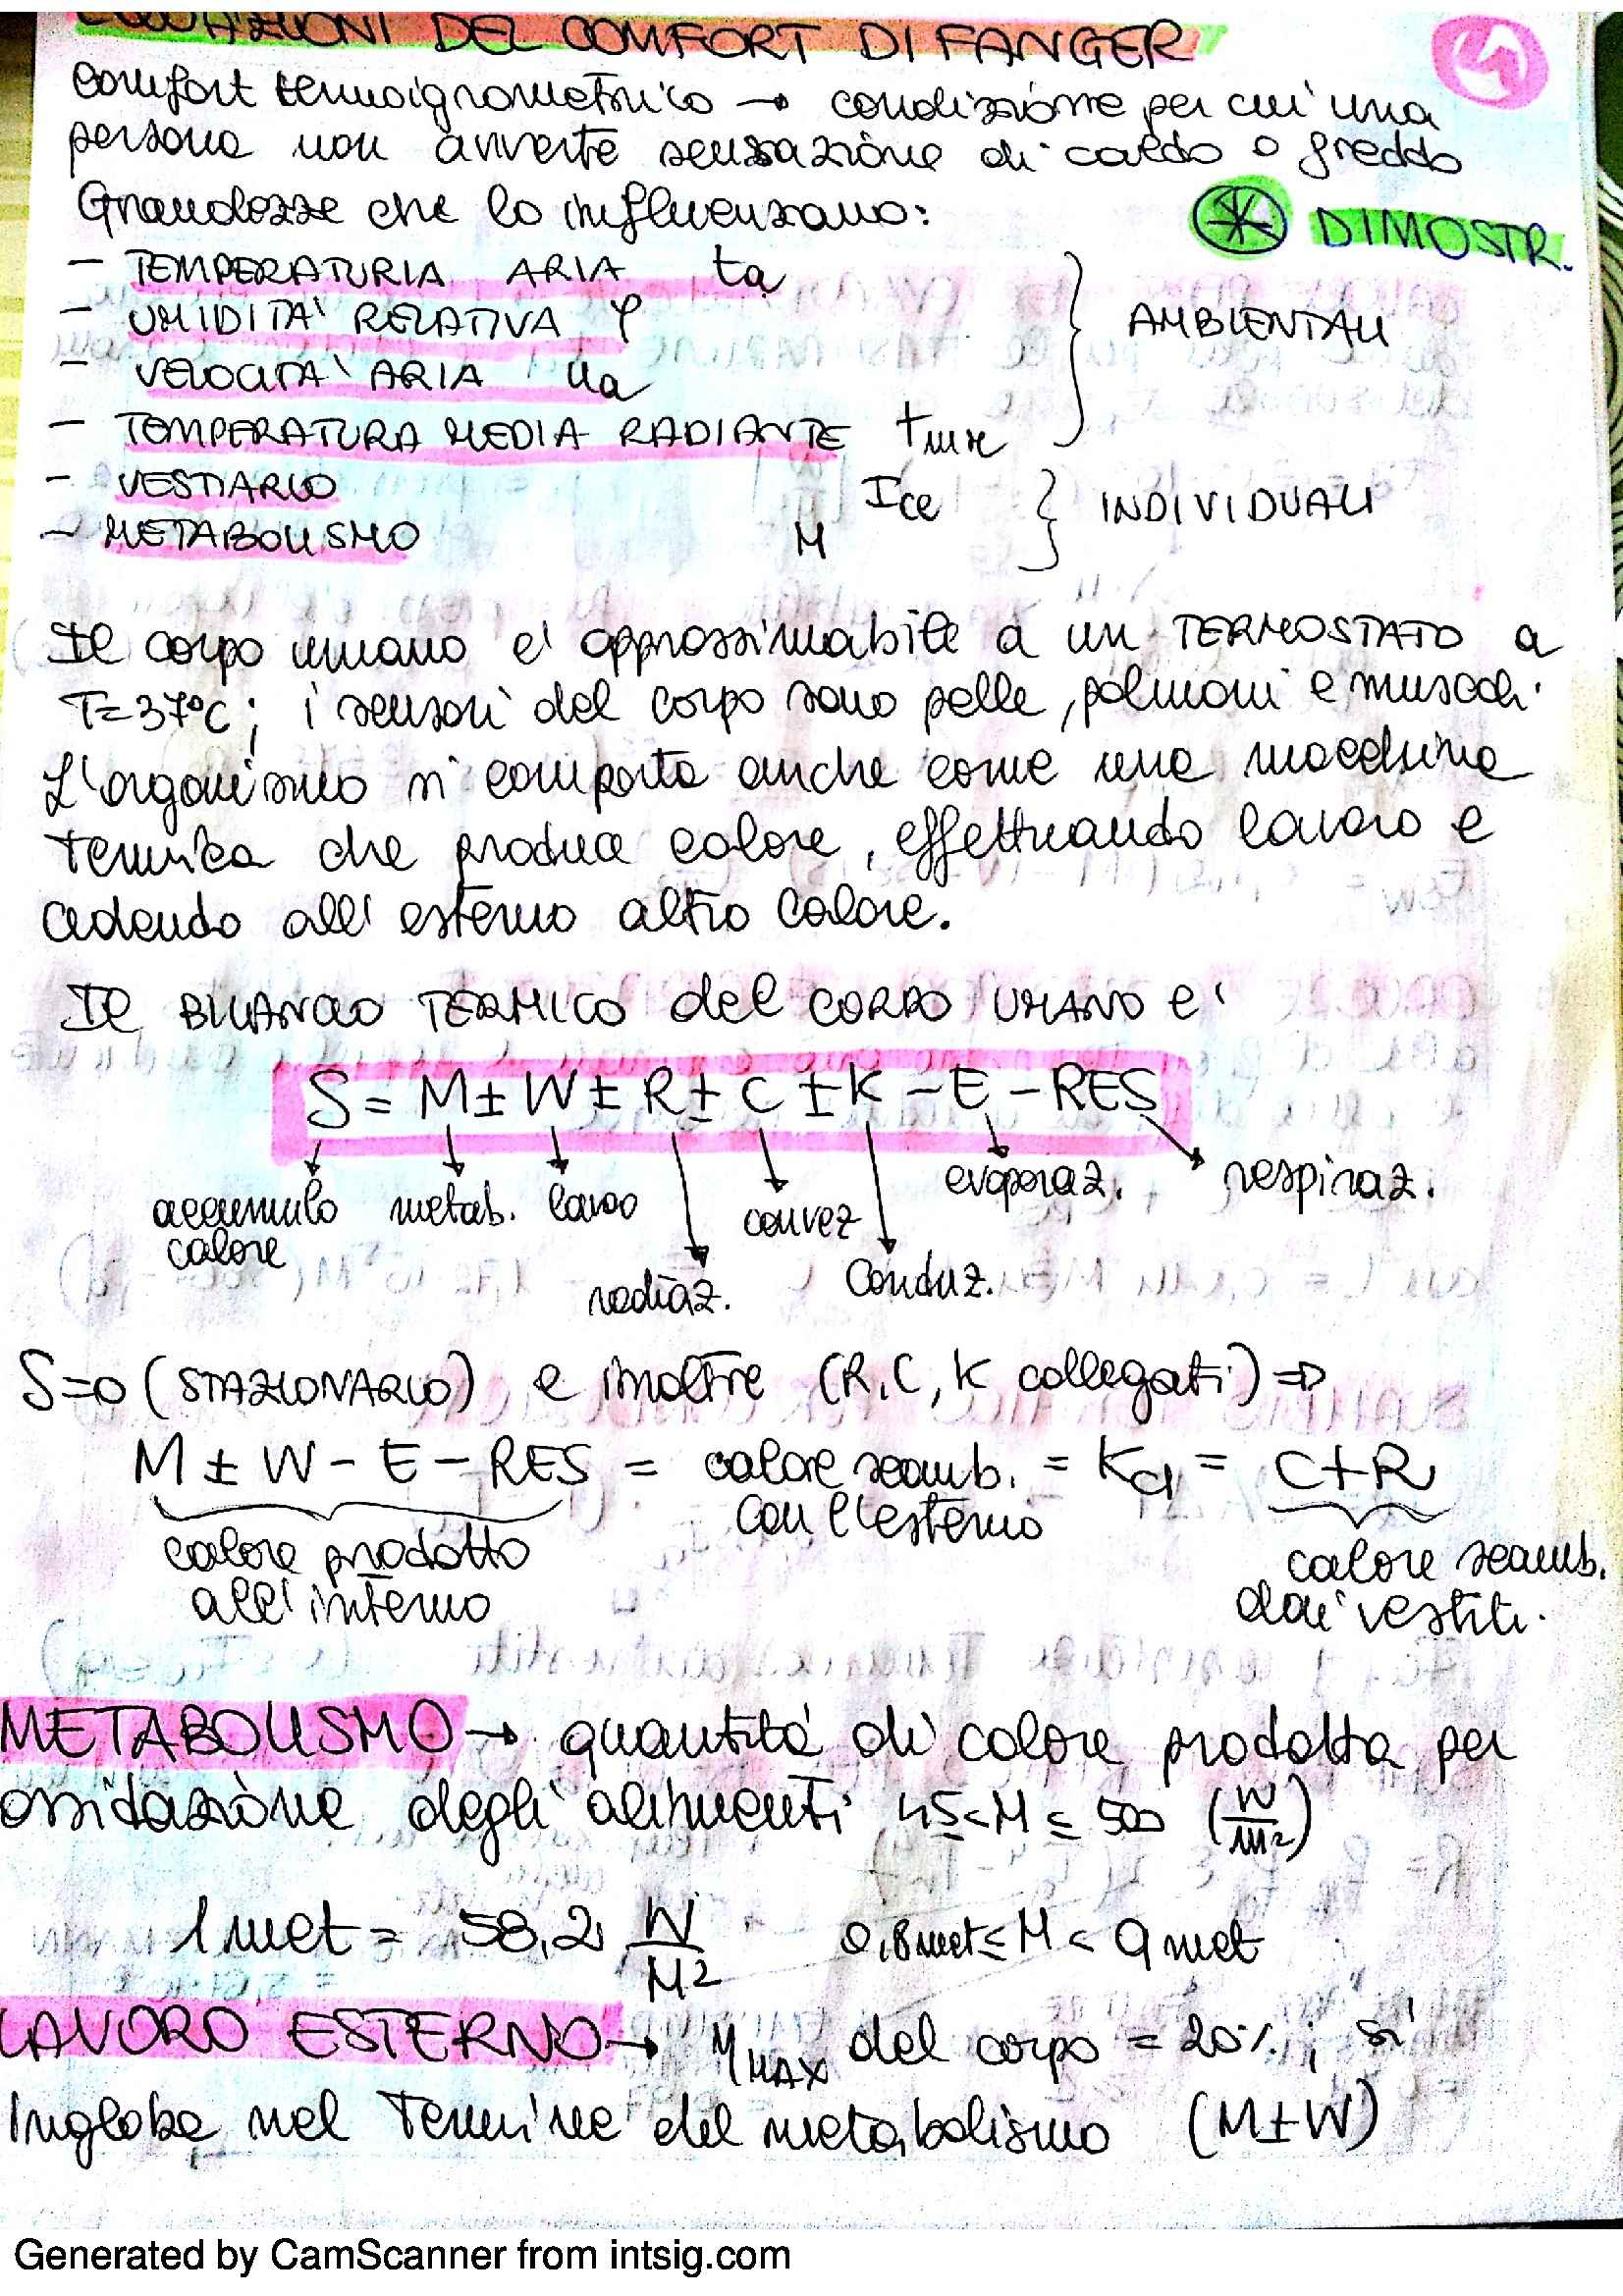 EQUAZIONI DEL COMFORT DI FANGER
comfort termoigrometrico → condizione per cui una
persona non avverte sensazione di caldo o freddo
Grandezze che lo influenzano:
DIMOSTR.
- TEMPERATURIA ARIA ta
- UMIDITA' RELATIVA φ
- VELOCITA' ARIA ua
- TEMPERATURA MEDIA RADIANTE tmr
AMBIENTALI
- VESTIARIO Ice
- METABOLISMO M
INDIVIDUALI
Il corpo umano e' approssimabile a un TERMOSTATO a
T=37°C; i sensori del corpo sono pelle, polmoni e muscoli.
L'organismo si comporta anche come una macchina
termica che produce calore, effettuando lavoro e
cedendo all'esterno altro calore.
Il BILANCIO TERMICO del CORPO UMANO e'
S = M ± W ± R ± C ± K - E - RES
accumulo calore
metab.
lavoro
radiaz.
convez
conduz.
evaporaz.
respiraz.
S=0 (STAZIONARIO) e inoltre (R, C, K collegati) ⇒
M ± W - E - RES = calore scamb. con l'esterno = Kcl = C+R
calore prodotto all'interno
calore scamb. dai vestiti.
METABOLISMO → quantità di calore prodotta per
ossidazione degli alimenti 45 ≤ M ≤ 500 (W/m²)
1 met = 58,2 W/M² 0,8 met ≤ M < 9 met
LAVORO ESTERNO → ηMAX del corpo = 20%; si
ingloba nel termine del metabolismo (M±W)
Generated by CamScanner from intsig.com